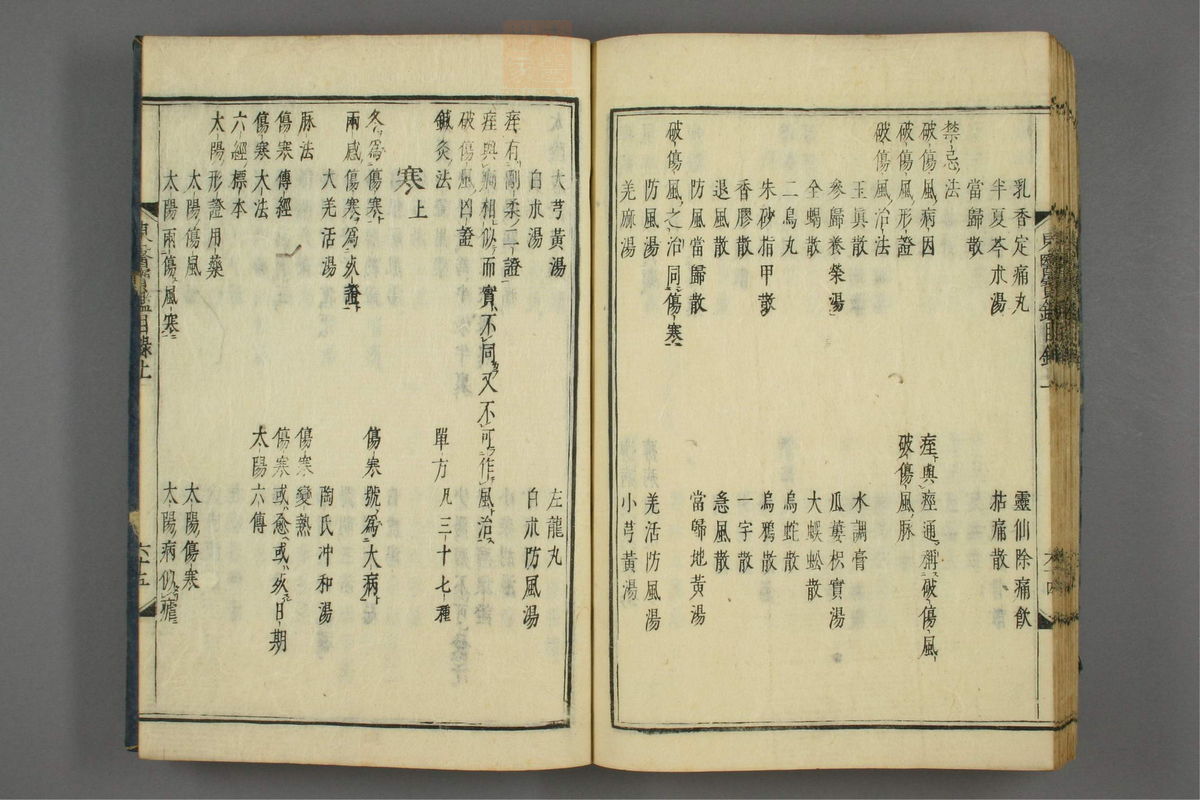 東醫寶鑑目錄上 六十四
乳香定痛丸 靈仙除痛飲
半夏芩朮湯 拈痛散
當歸散
禁忌法
破傷風病因 痓與痙通稱破傷風
破傷風形證 破傷風脉
破傷風治法
玉眞散 水調膏
參歸養榮湯 瓜蔞枳實湯
全蝎散 大蜈蚣散
二烏丸 烏蛇散
朱砂指甲散 烏鴉散
香膠散 一字散
退風散 急風散
防風當歸散 當歸地黃湯
破傷風之治同傷寒
防風湯 羌活防風湯
羌麻湯 小芎黃湯
大芎黃湯 左龍丸
白朮湯 白朮防風湯
痓有剛柔二證
痓與癎相似而實不同又不可作風治
破傷風凶證
鍼灸法 單方凡三十七種
寒上
冬爲傷寒 傷寒號爲大病
兩感傷寒爲死證
大羌活湯 陶氏冲和湯
脉法 傷寒變熱
傷寒傳經 傷寒或愈或死日期
傷寒大法 太陽六傳
六經標本
太陽形證用藥
太陽傷風 太陽傷寒
太陽兩傷風寒 太陽病似瘧
東醫寶鑑目錄上 六十五